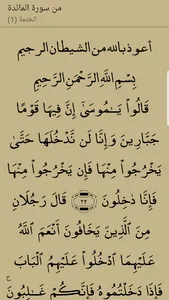 من سورة المائدة
الختمة (1)
أعوذ بالله من الشيطان الرجيم
بِسْمِ ٱللَّهِ ٱلرَّحْمَٰنِ ٱلرَّحِيمِ
قَالُوا۟ يَٰمُوسَىٰٓ إِنَّ فِيهَا قَوْمًا
جَبَّارِينَ وَإِنَّا لَن نَّدْخُلَهَا حَتَّىٰ
يَخْرُجُوا۟ مِنْهَا فَإِن يَخْرُجُوا۟ مِنْهَا
فَإِنَّا دَٰخِلُونَ ٢٢ قَالَ رَجُلَانِ
مِنَ ٱلَّذِينَ يَخَافُونَ أَنْعَمَ ٱللَّهُ
عَلَيْهِمَا ٱدْخُلُوا۟ عَلَيْهِمُ ٱلْبَابَ
فَإِذَا دَخَلْتُمُوهُ فَإِنَّكُمْ غَٰلِبُونَ ۚ